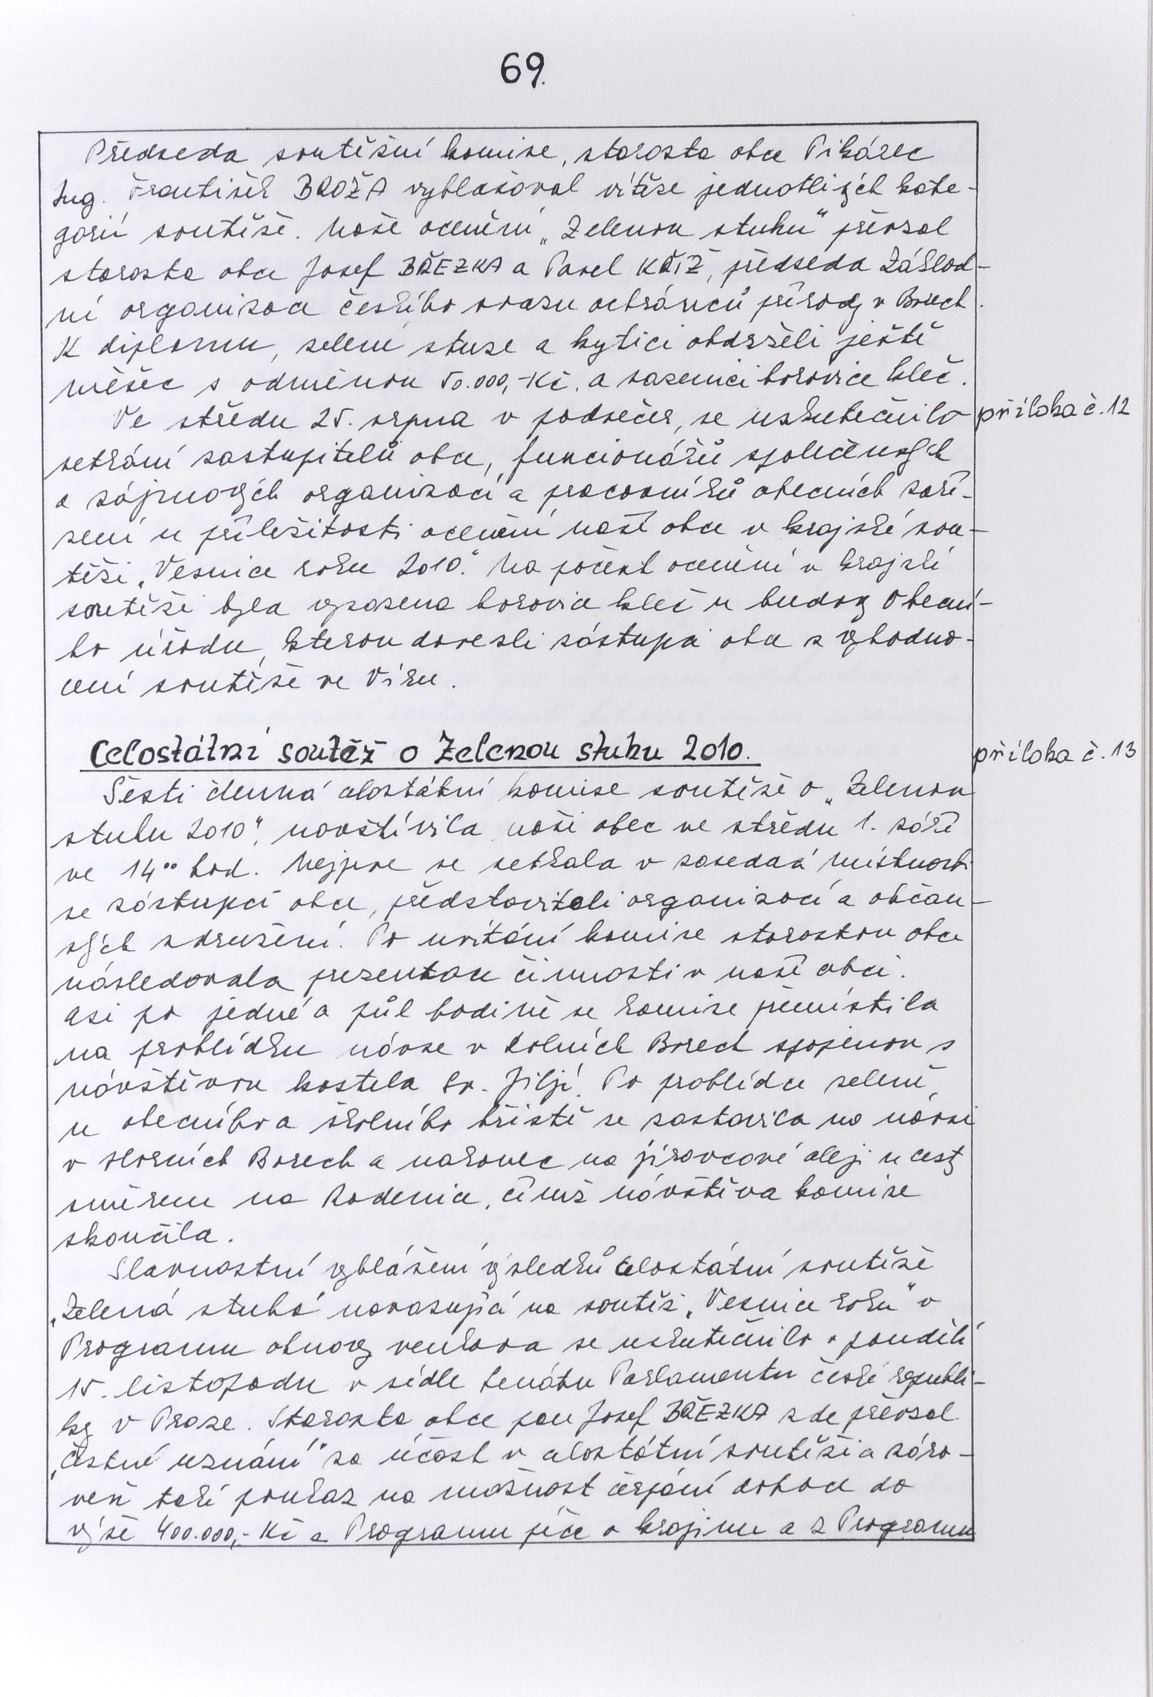 69.
Předseda soutěžní komise, starosta obce Pikárec
Ing. František BROŽA vyhlašoval vítěze jednotlivých kate-
gorií soutěže. Naše ocenění „Zelenou stuhu" převzal
starosta obce Josef BŘEZKA a Pavel KŘÍŽ, předseda Základ-
ní organizace českého svazu ochránců přírody v Borech.
K diplomu, zelené stuze a kytici obdrželi ještě
měšec s odměnou 50.000,-Kč. a sazenici borovice kleč.
Ve středu 25. srpna v podvečer, se uskutečnilo
příloha č. 12
setkání zastupitelů obce, funcionářů společenských
a zájmových organizací a pracovníků obecních zaří-
zení u příležitosti ocenění naší obce v krajské sou-
těži „Vesnice roku 2010". Na počest ocenění v krajské
soutěži byla vysazena borovice kleč u budovy Obecní-
ho úřadu, kterou dovezli zástupci obce z vyhodno-
cení soutěže ve Víru.
Celostátní soutěž o Zelenou stuhu 2010.
příloha č. 13
Šesti členná celostátní komise soutěže o „Zelenou
stuhu 2010", navštívila naši obec ve středu 1. září
ve 14⁰⁰ hod. Nejprve se setkala v zasedací místnosti
se zástupci obce, představiteli organizací a občan-
ských sdružení. Po uvítání komise starostou obce
následovala prezentace činnosti v naší obci.
Asi po jedné a půl hodině se komise přemístila
na prohlídku návse v Dolních Borech spojenou s
návštěvou kostela sv. Jiljí. Po prohlídce zeleně
u obecního a školního hřiště se zastavila na návsi
v Horních Borech a nakonec na jírovcové aleji u cesty
směrem na Radenice, čímž návštěva komise
skončila.
Slavnostní vyhlášení výsledků celostátní soutěže
„Zelená stuha" navazující na soutěž „Vesnice roku" v
Programu obnovy venkova se uskutečnilo v pondělí
15. listopadu v sídle Senátu Parlamentu české republi-
ky v Praze. Starosta obce pan Josef BŘEZKA zde převzal
„čestné uznání" za účast v celostátní soutěži a záro-
veň také poukaz na možnost čerpání dotace do
výše 400.000,- Kč z Programu péče o krajinu a z Programu